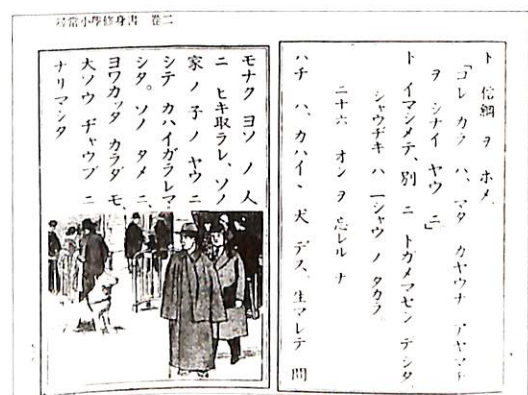 尋常小學修身書 卷二
ト 信綱 ヲ ホメ、
「コレ カラ ハ、マタ カヤウナ アヤマチ
ヲ シナイ ヤウ ニ」
ト イマシメテ、別 ニ トガメマセン デシタ。
シャウヂキ ハ 一シャウ ノ タカラ。
二十六 オン ヲ 忘レル ナ
ハチ ハ、カハイヽ 犬 デス。生マレテ 間
モナク ヨソ ノ 人
ニ ヒキ取ラレ、ソノ
家 ノ 子 ノ ヤウ ニ
シテ カハイガラレマ
シタ。ソノ タメ ニ、
ヨワカッタ カラダ モ、
大ソウ ヂャウブ ニ
ナリマシタ